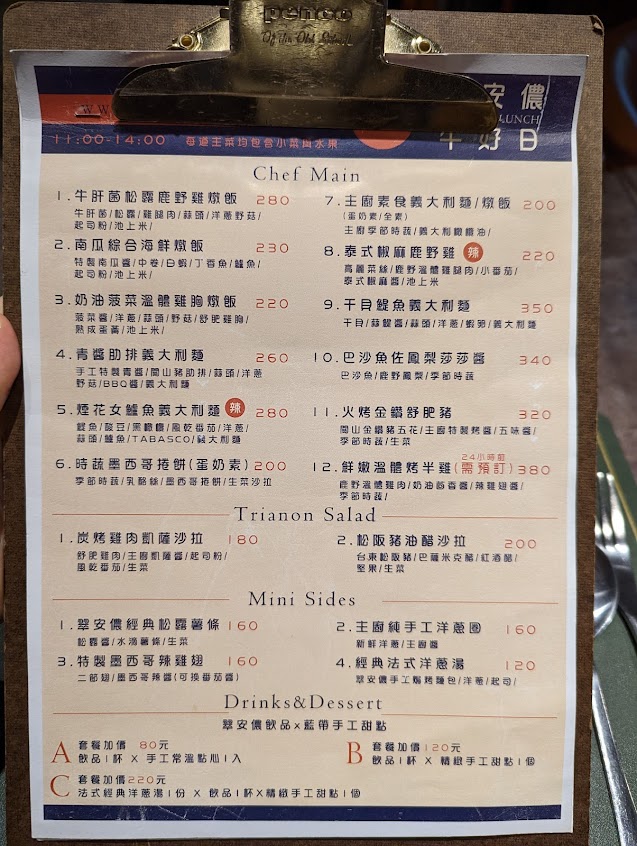 penco
Of the Old School
WW
安儂
LUNCH
午好日
11:00-14:00 每道主菜均包含小菜與水果
Chef Main
1.牛肝菌松露鹿野雞燉飯 280
牛肝菌/松露/雞腿肉/蒜頭/洋蔥野菇/
起司粉/池上米/
2.南瓜綜合海鮮燉飯 230
特製南瓜醬/中卷/白蝦/丁香魚/鱸魚/
起司粉/池上米/
3.奶油菠菜溫體雞胸燉飯 220
菠菜醬/洋蔥/蒜頭/野菇/舒肥雞胸/
熟成蛋黃/池上米/
4.青醬肋排義大利麵 260
手工特製青醬/關山豬肋排/蒜頭/洋蔥
野菇/BBQ醬/義大利麵
5.煙花女鱸魚義大利麵 辣 280
鯷魚/酸豆/黑橄欖/風乾番茄/洋蔥/
蒜頭/鱸魚/TABASCO/義大利麵
6.時蔬墨西哥捲餅(蛋奶素) 200
季節時蔬/乳酪絲/墨西哥捲餅/生菜沙拉
7.主廚素食義大利麵/燉飯 200
(蛋奶素/全素)
主廚季節時蔬/義大利橄欖油/
8.泰式椒麻鹿野雞 辣 220
高麗菜絲/鹿野溫體雞腿肉/小番茄/
泰式椒麻醬/池上米
9.干貝鯷魚義大利麵 350
干貝/蒜鯷醬/蒜頭/洋蔥/蝦卵/義大利麵
10.巴沙魚佐鳳梨莎莎醬 340
巴沙魚/鹿野鳳梨/季節時蔬
11.火烤金鑽舒肥豬 320
關山金鑽豬五花/主廚特製烤醬/五味醬/
季節時蔬/生菜
24小時前
12.鮮嫩溫體烤半雞(需預訂) 380
鹿野溫體雞肉/奶油香醬/辣雞翅醬/
季節時蔬/
Trianon Salad
1.炭烤雞肉凱薩沙拉 180
舒肥雞肉/主廚凱薩醬/起司粉/
風乾番茄/生菜
2.松阪豬油醋沙拉 200
台東松阪豬/巴薩米克醋/紅酒醋/
堅果/生菜
Mini Sides
1.翠安儂經典松露薯條 160
松露醬/水滴薯條/生菜
2.主廚純手工洋蔥圈 160
新鮮洋蔥/主廚醬
3.特製墨西哥辣雞翅 160
二節翅/墨西哥辣醬(可換番茄醬)
4.經典法式洋蔥湯 120
翠安儂手工焗烤麵包/洋蔥/起司/
Drinks&Dessert
翠安儂飲品×藍帶手工甜點
A 套餐加價 80元
飲品1杯 X 手工常溫點心1入
B 套餐加價120元
飲品1杯 X 精緻手工甜點1個
C 套餐加價220元
法式經典洋蔥湯1份 X 飲品1杯X精緻手工甜點1個